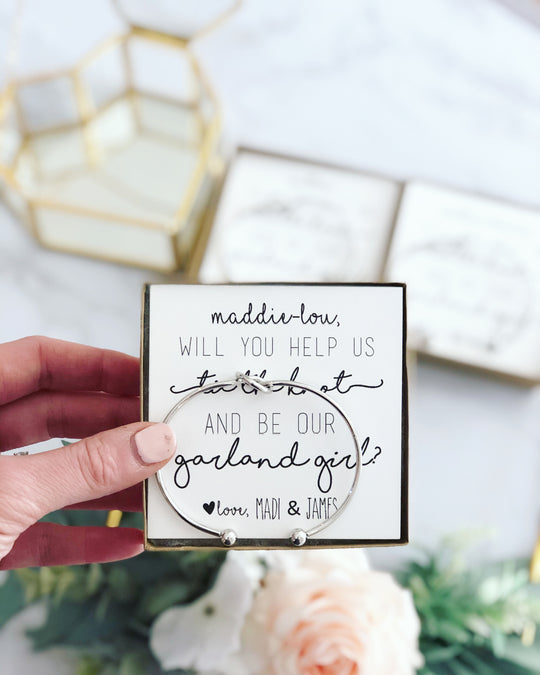 maddie-lou,
WILL YOU HELP US
tie the knot
AND BE OUR
garland girl?
♥love, MADI & JAMES